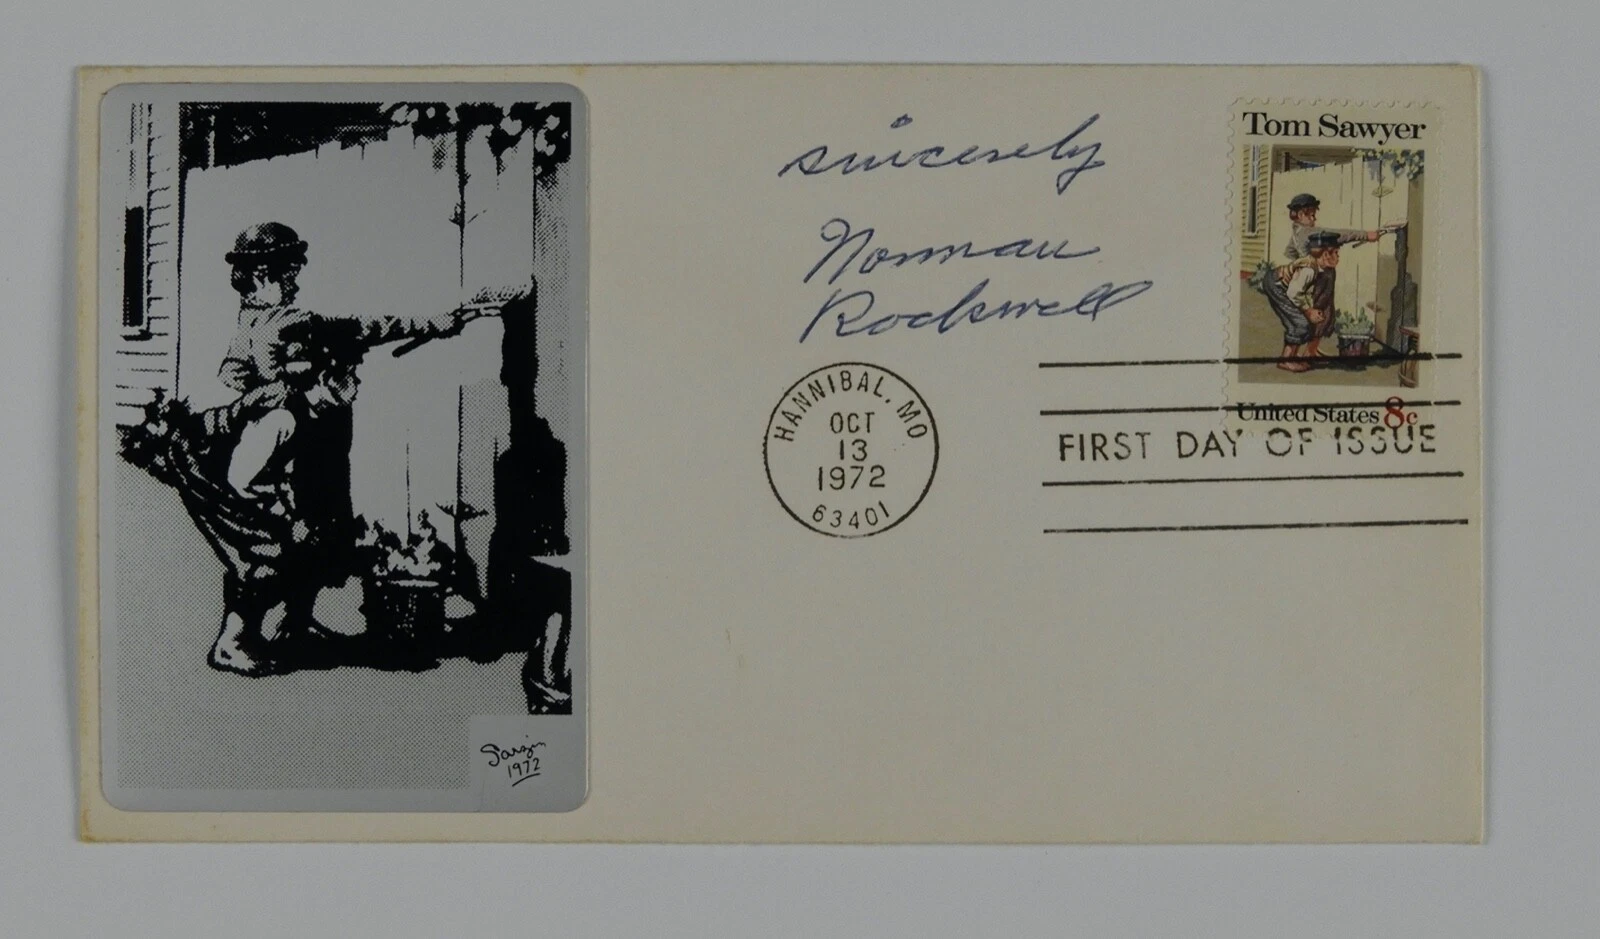 sincerely
Norman
Rockwell
Tom Sawyer
United States 8c
HANNIBAL, MO
OCT
13
1972
63401
FIRST DAY OF ISSUE
Sarzin
1972